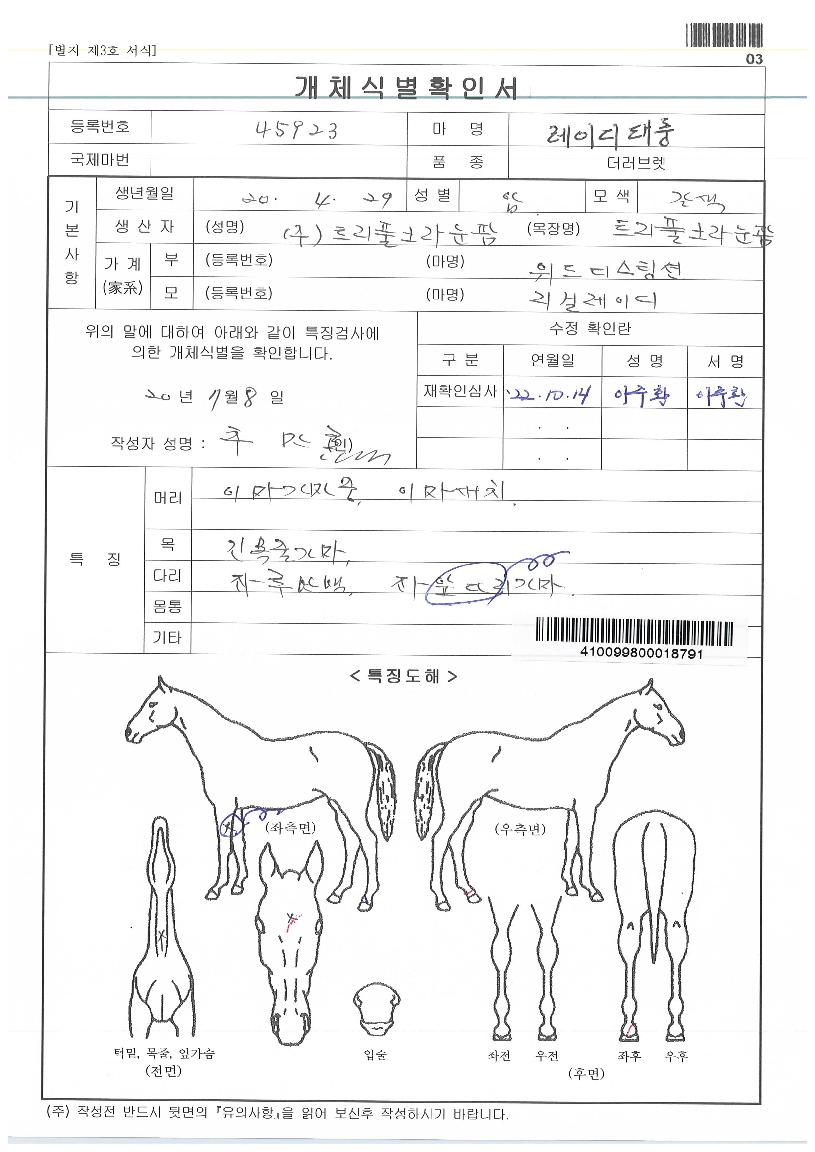 [별지 제3호 서식]
03
개체식별확인서
등록번호 45923 마 명 레이디태룡
국제마번 품 종 더러브렛
기본사항
생년월일 20. 4. 29 성별 암 모색 갈색
생산자 (성명) (주)트리플크라운팜 (목장명) 트리플크라운팜
가계 (家系) 부 (등록번호) (마명) 위드디스팅션
모 (등록번호) (마명) 리설레이디
위의 말에 대하여 아래와 같이 특징검사에
의한 개체식별을 확인합니다.
20년 7월 8일
작성자 성명 : (인)
수정 확인란
구 분 연월일 성 명 서 명
재확인심사 '22.10.14 이주환 이주환
. .
. .
특 징
머리
목 긴목줄가마,
다리 좌앞다리가마.
몸통
기타
410099800018791
< 특징도해 >
(좌측면) (우측면)
턱밑, 목줄, 앞가슴
(전면)
입술
좌전 우전 좌후 우후
(후면)
(주) 작성전 반드시 뒷면의 『유의사항』을 읽어 보신후 작성하시기 바랍니다.